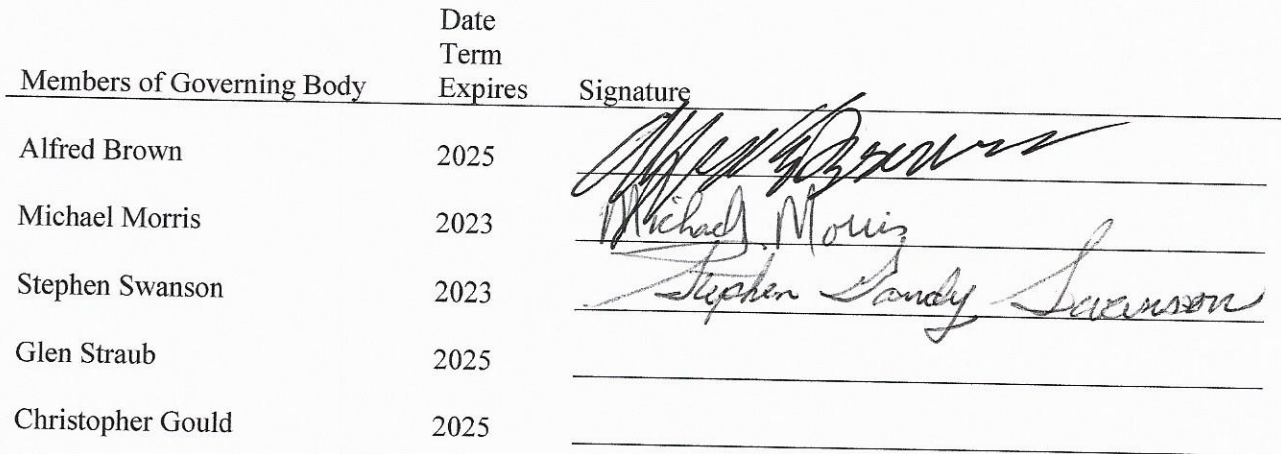 Date
Term
Members of Governing Body Expires Signature
Alfred Brown 2025 Alfred Brown
Michael Morris 2023 Michael Morris
Stephen Swanson 2023 Stephen Sandy Swanson
Glen Straub 2025
Christopher Gould 2025